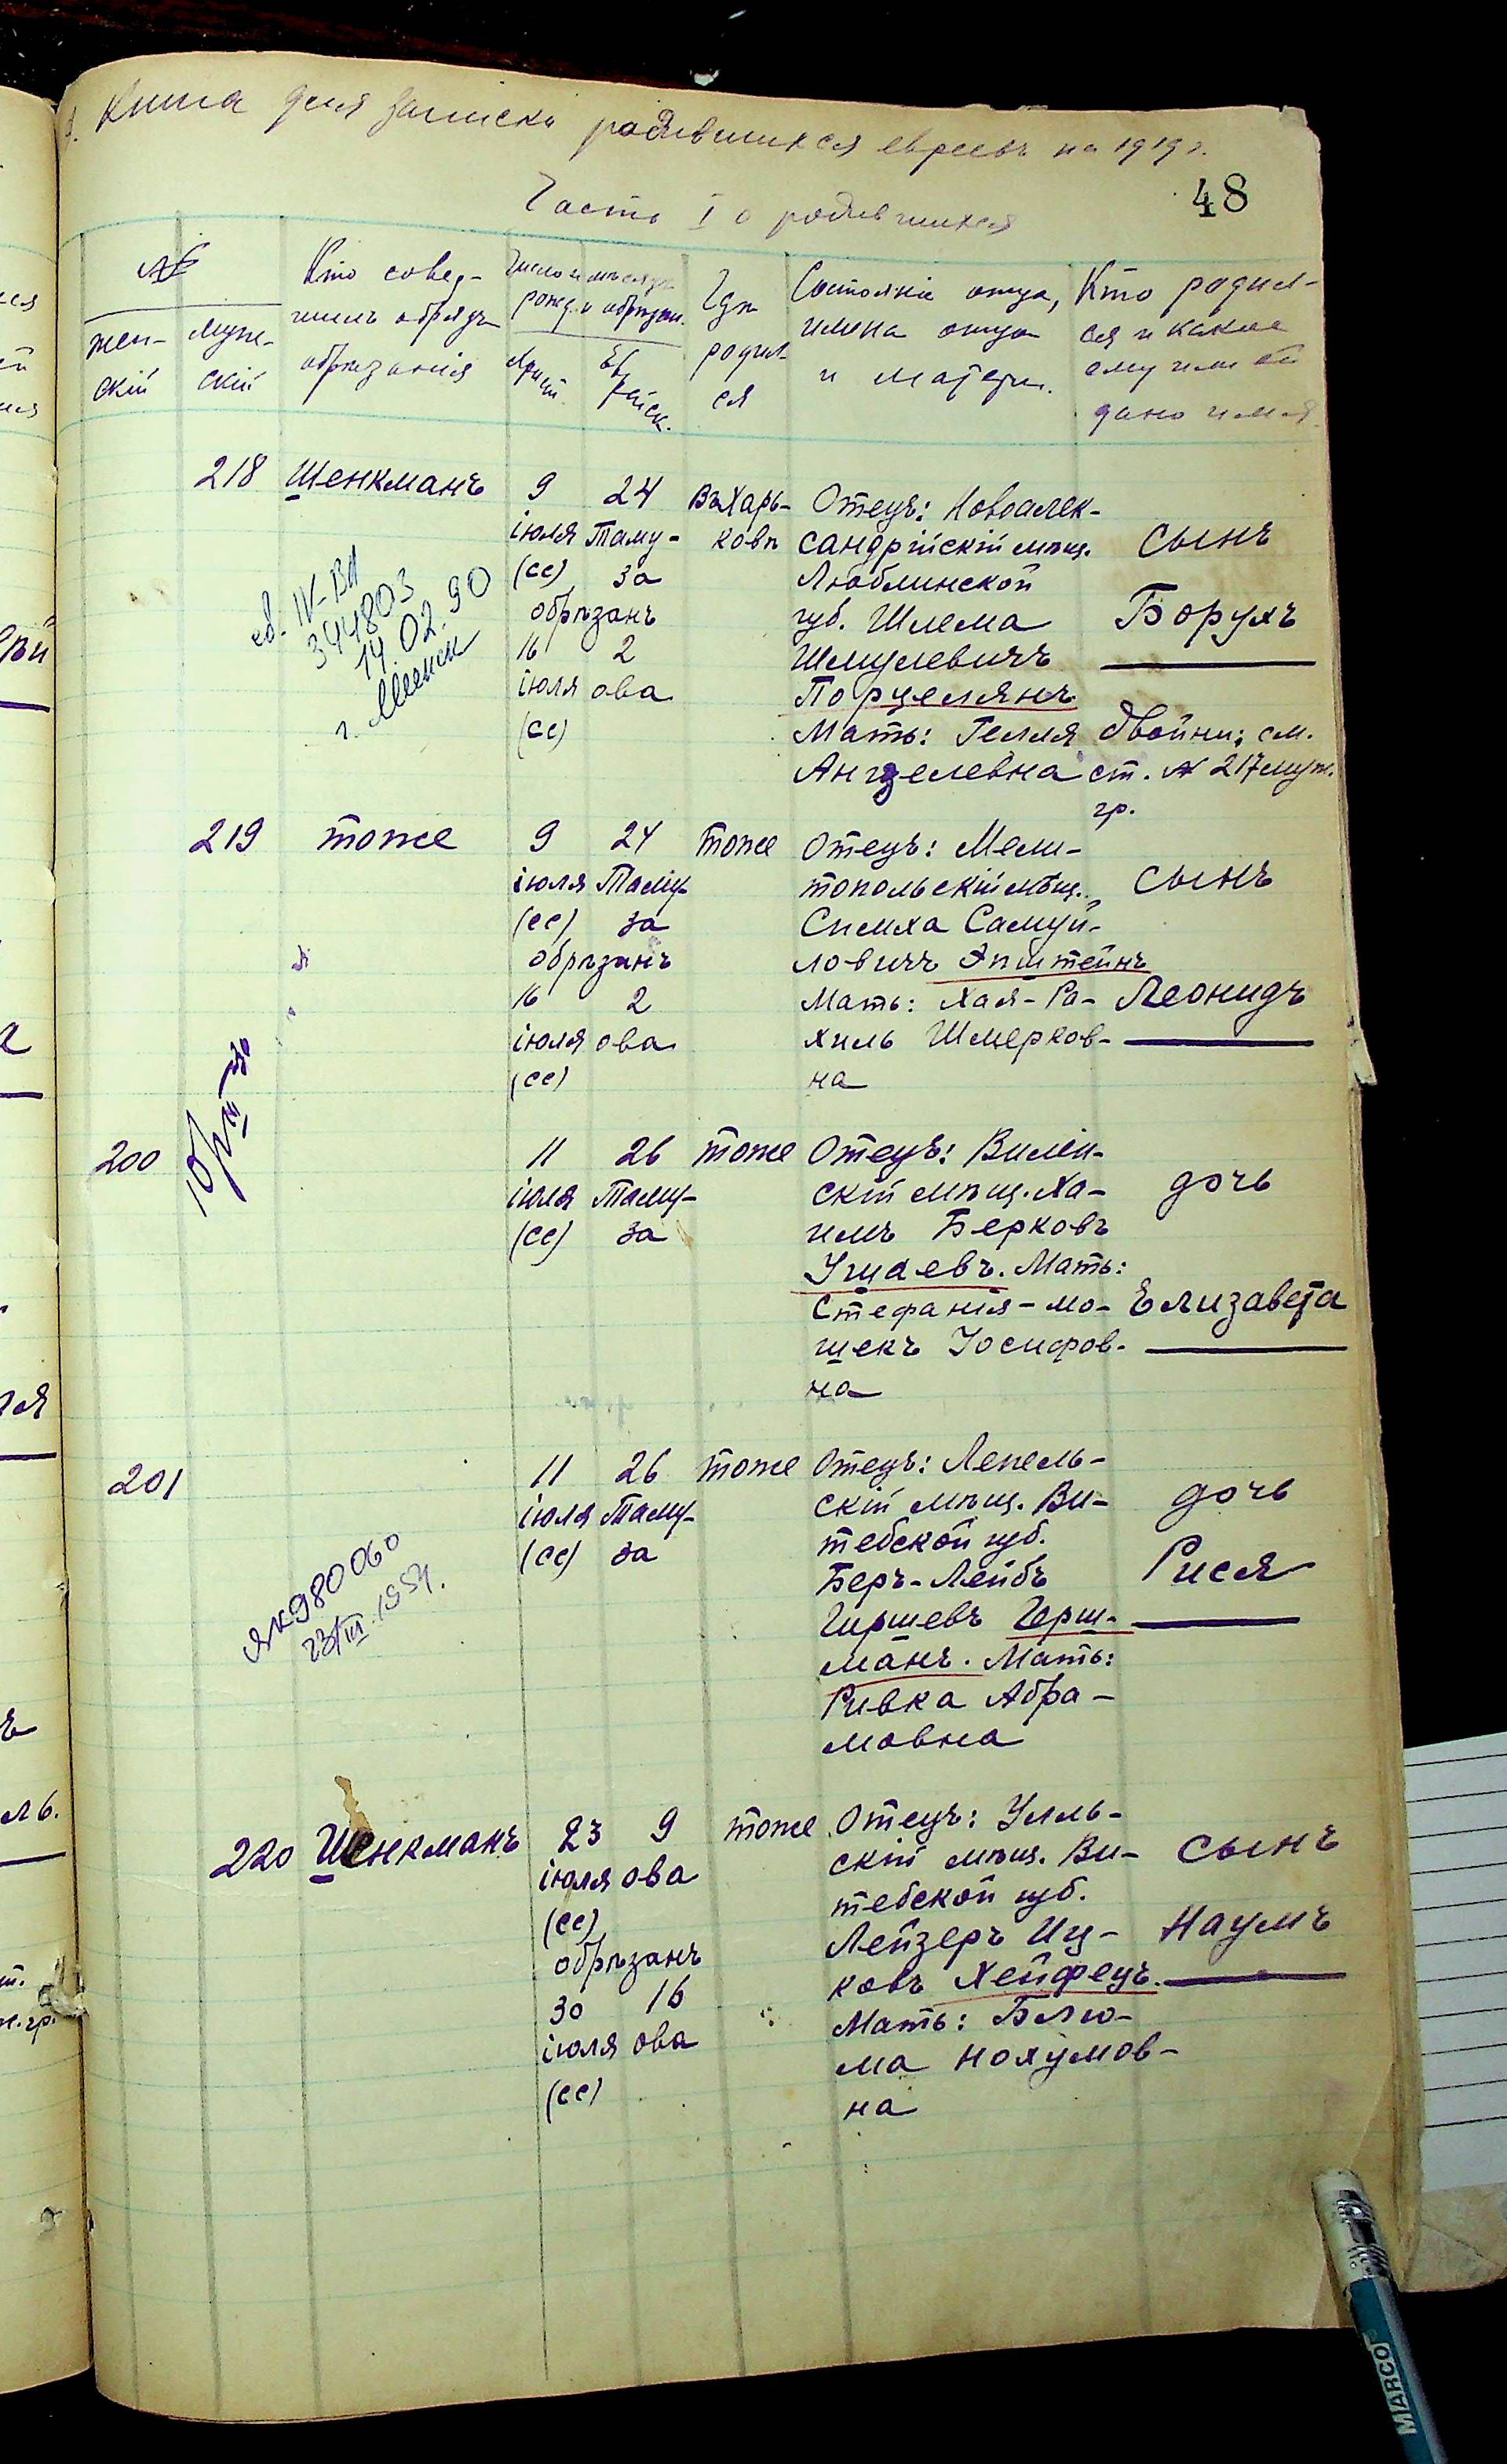 Книга для записки родившихся евреевъ на 1919 г.
48
Часть I о родившихся
№
жен-
скій
муж-
скій
Кто совер-
шилъ обрядъ
обрѣзанія
Число и мѣсяцъ
рожд. и обрѣзан.
Христ.
Ев-
рейск.
Гдѣ
родил-
ся
Состояніе отца,
имена отца
и матери.
Кто родил-
ся и какое
ему или ей
дано имя.
218
Шенкманъ
9
іюля
(сс)
24
Таму-
за
обрѣзанъ
16
іюля
(сс)
2
ова
Въ Харь-
ковѣ
Отецъ: Новоалек-
сандрійскій мѣщ.
Люблинской
губ. Шлема
Шмулевичъ
Порцелянъ
Мать: Гелля
Анцелевна
сынъ
Борухъ
Двойни; см.
ст. № 217 муж.
гр.
344803
14.02.90
219
тоже
9
іюля
(сс)
24
Таму-
за
обрѣзанъ
16
іюля
(сс)
2
ова
тоже
Отецъ: Мели-
топольскій мѣщ.
Симха Самуй-
ловичъ Эпштейнъ
Мать: Хая-Ра-
хиль Шмерков-
на
сынъ
Леонидъ
200
11
іюля
(сс)
26
Таму-
за
тоже
Отецъ: Вилен-
скій мѣщ. Ха-
имъ Берковъ
Мать:
Стефанія-мо-
шекъ Іосифов-
на
дочь
Елизавета
201
11
іюля
(сс)
26
Таму-
за
тоже
Отецъ: Лепель-
скій мѣщ. Ви-
тебской губ.
Беръ-Лейбъ
Гиршевъ Герш-
манъ. Мать:
Ривка Абра-
мовна
дочь
Рися
980060
23/III.1954.
220
Шенкманъ
23
іюля
(сс)
9
ова
обрѣзанъ
30
іюля
(сс)
16
ова
тоже
Отецъ: Улль-
скій мѣщ. Ви-
тебской губ.
Лейзеръ Иц-
ковъ Хейфецъ.
Мать: Блю-
ма Нохумов-
на
сынъ
Наумъ
MARCO